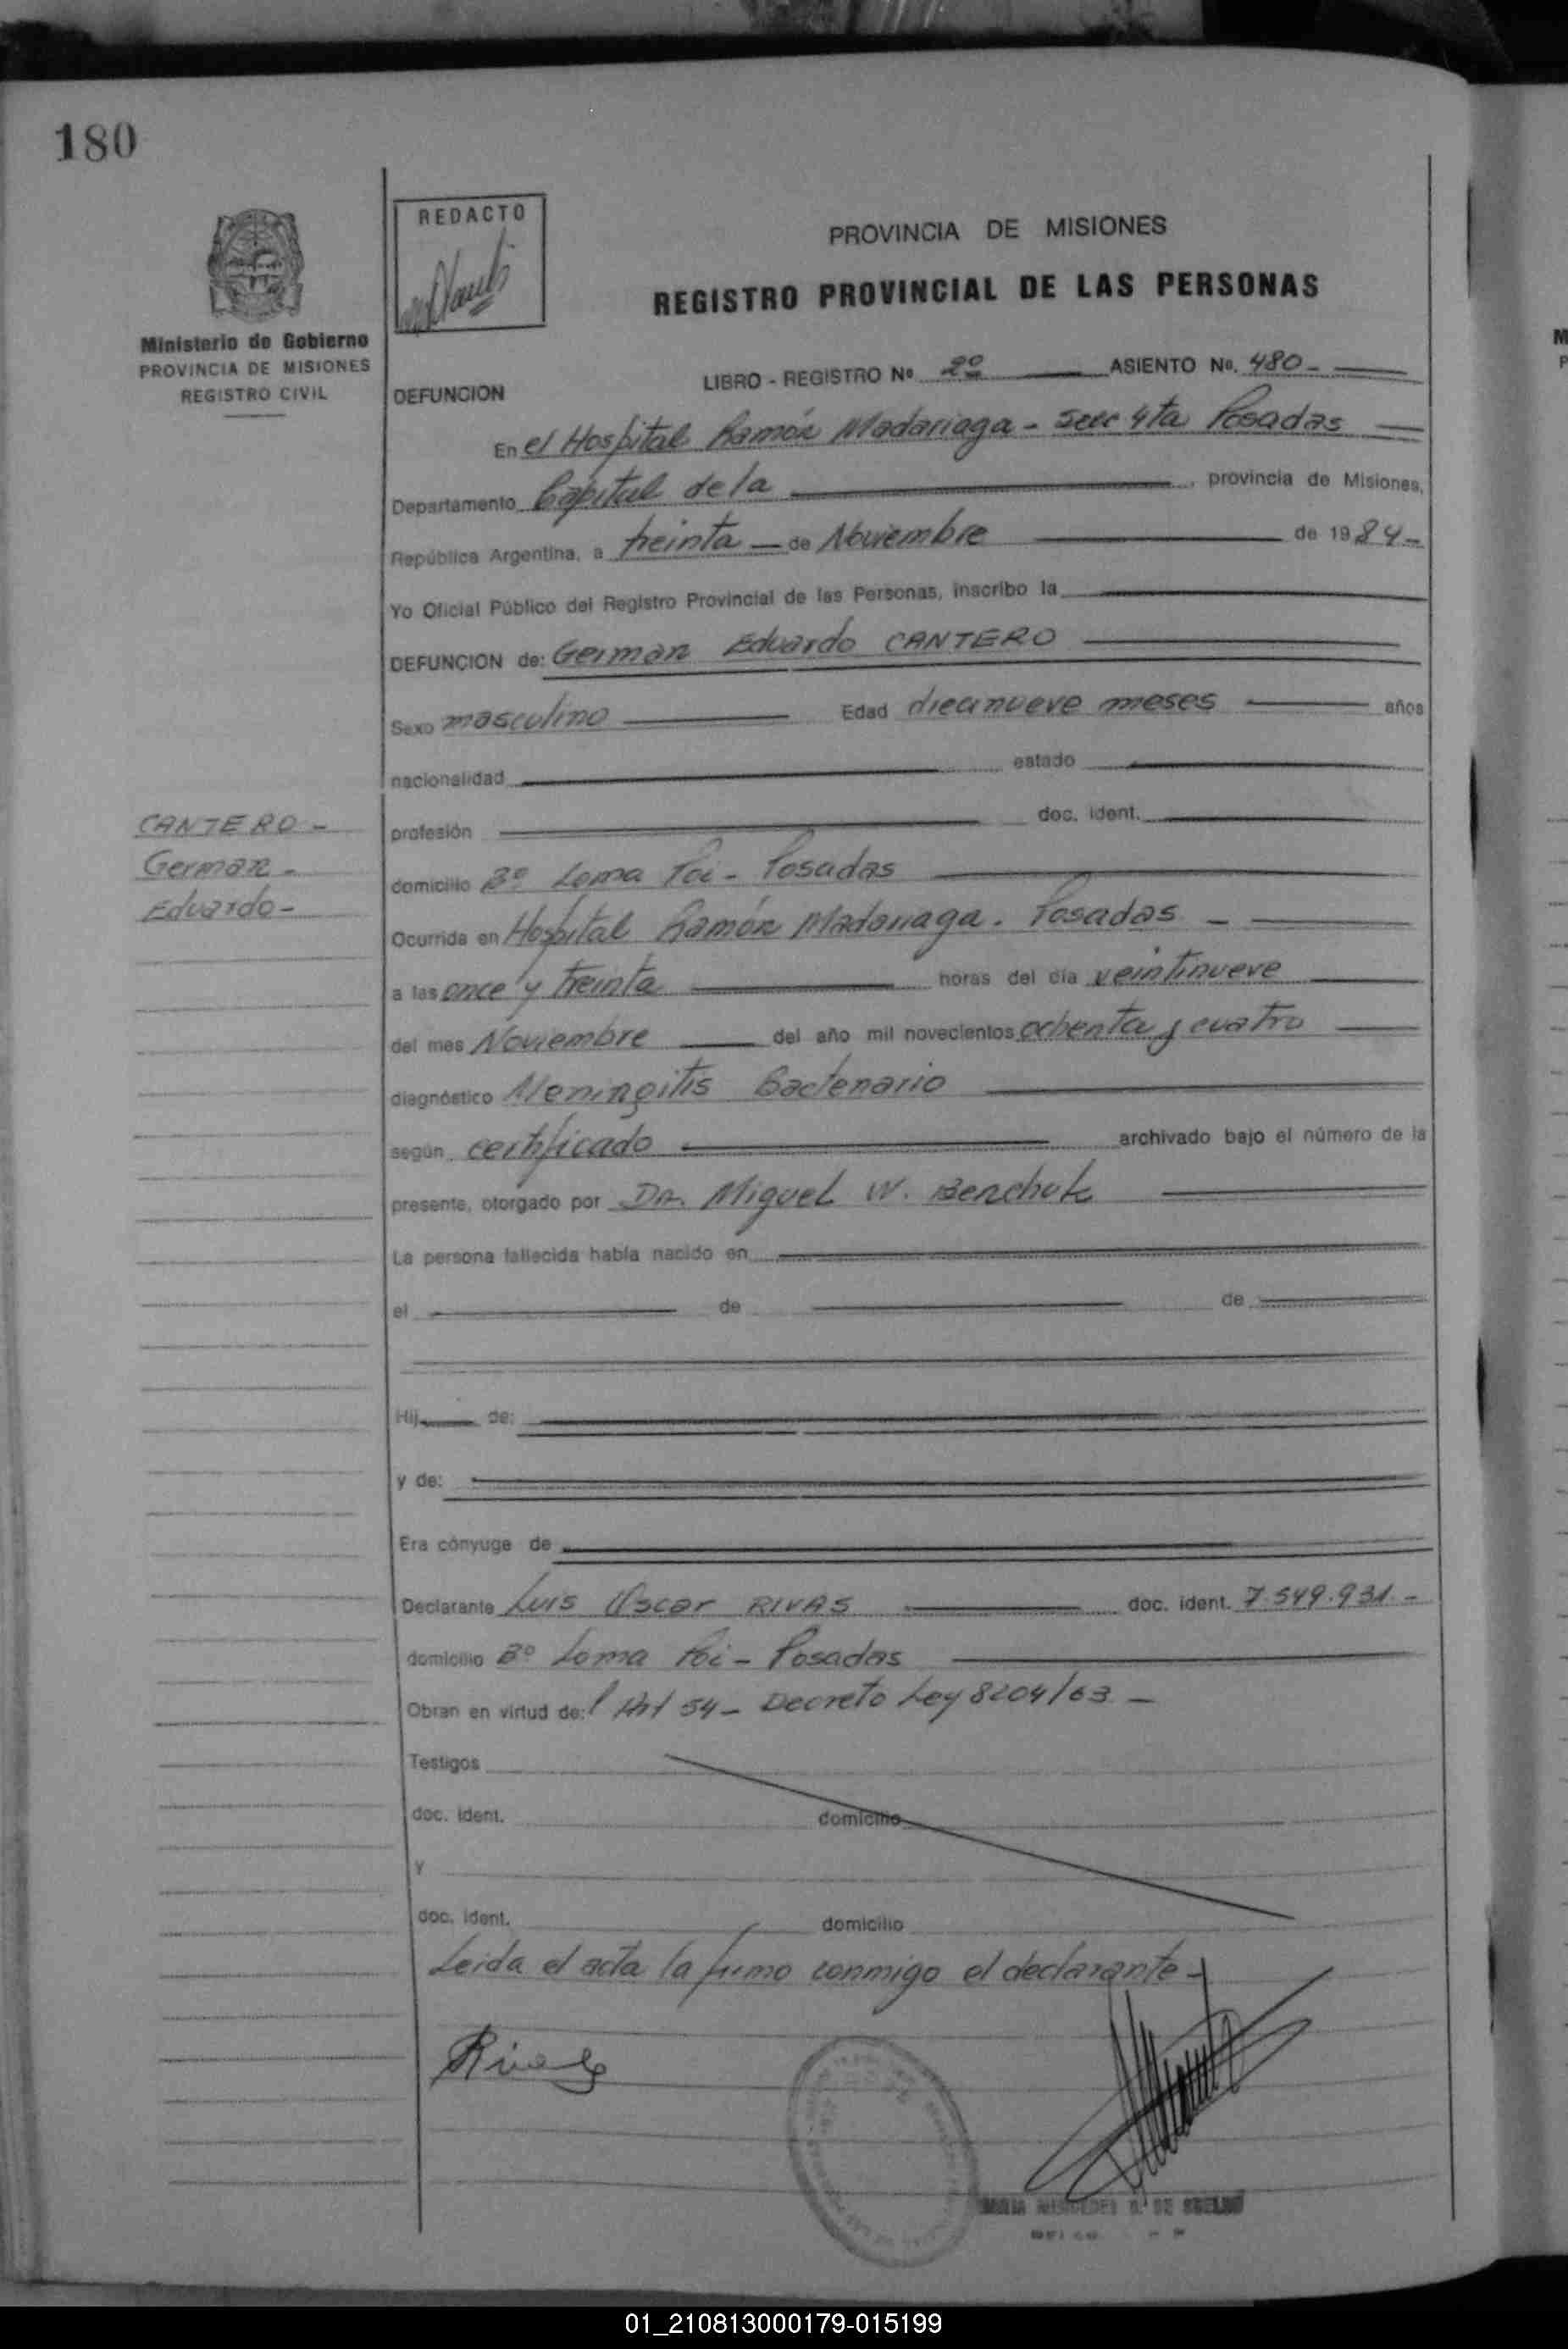 180
REDACTO
PROVINCIA DE MISIONES
REGISTRO PROVINCIAL DE LAS PERSONAS
Ministerio de Gobierno
PROVINCIA DE MISIONES
REGISTRO CIVIL
DEFUNCION
LIBRO - REGISTRO Nº 2º ASIENTO No. 480-
En el Hospital Ramón Madariaga - Secc 4ta Posadas
Departamento Capital de la , provincia de Misiones,
República Argentina, a treinta - de Noviembre de 1984-
Yo Oficial Público del Registro Provincial de las Personas, inscribo la
DEFUNCION de: German Eduardo CANTERO
Sexo masculino Edad diecinueve meses años
nacionalidad estado
CANTERO -
German -
Eduardo -
profesión doc. ident.
domicilio Bº Loma Poi - Posadas
Ocurrida en Hospital Ramón Madariaga. Posadas -
a las once y treinta horas del día veintinueve
del mes Noviembre del año mil novecientos ochenta y cuatro
diagnóstico Meningitis Bactenario
según certificado archivado bajo el número de la
presente, otorgado por Dr. Miguel W.
La persona fallecida había nacido en
el de de
Hij de:
y de:
Era cónyuge de
Declarante Luis Oscar RIVAS doc. ident. 7.549.931.-
domicilio Bº Loma Poi - Posadas
Obran en virtud de: Art 54 - Decreto Ley 8204/63 -
Testigos
doc. ident. domicilio
y
doc. ident. domicilio
Leida el acta la firmo conmigo el declarante -
Rivas
MARIA MERCEDES DE
01_210813000179-015199